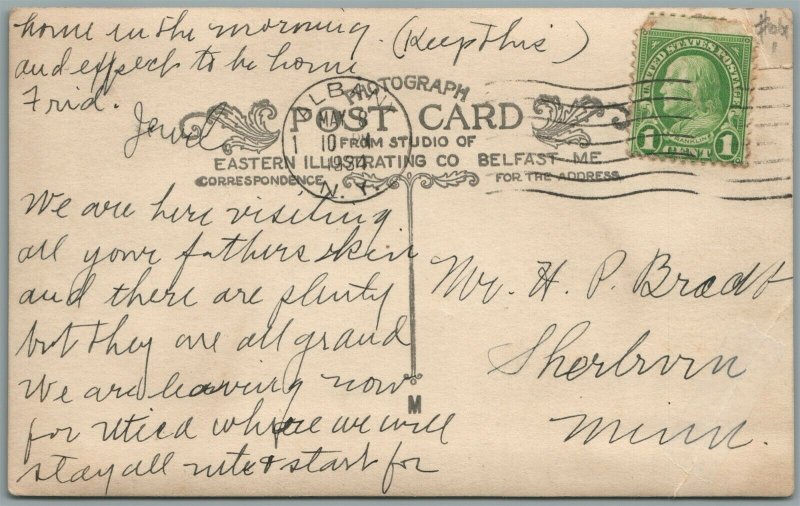 home in the morning. (Keep this)
and expect to be home
Frid.
Jewel
ALBANY
MAY 8
1 10 PM
1934
N.Y.
UNITED STATES POSTAGE
FRANKLIN
1 CENT 1
PHOTOGRAPH
POST CARD
FROM STUDIO OF
EASTERN ILLUSTRATING CO BELFAST ME
CORRESPONDENCE FOR THE ADDRESS
We are here visiting
all your fathers skin
and there are plenty
but they are all grand
We are leaving now
for Utica where we will
stay all nite & start for
M
Mr. H. P. Bradt
Sherburn
Minn.